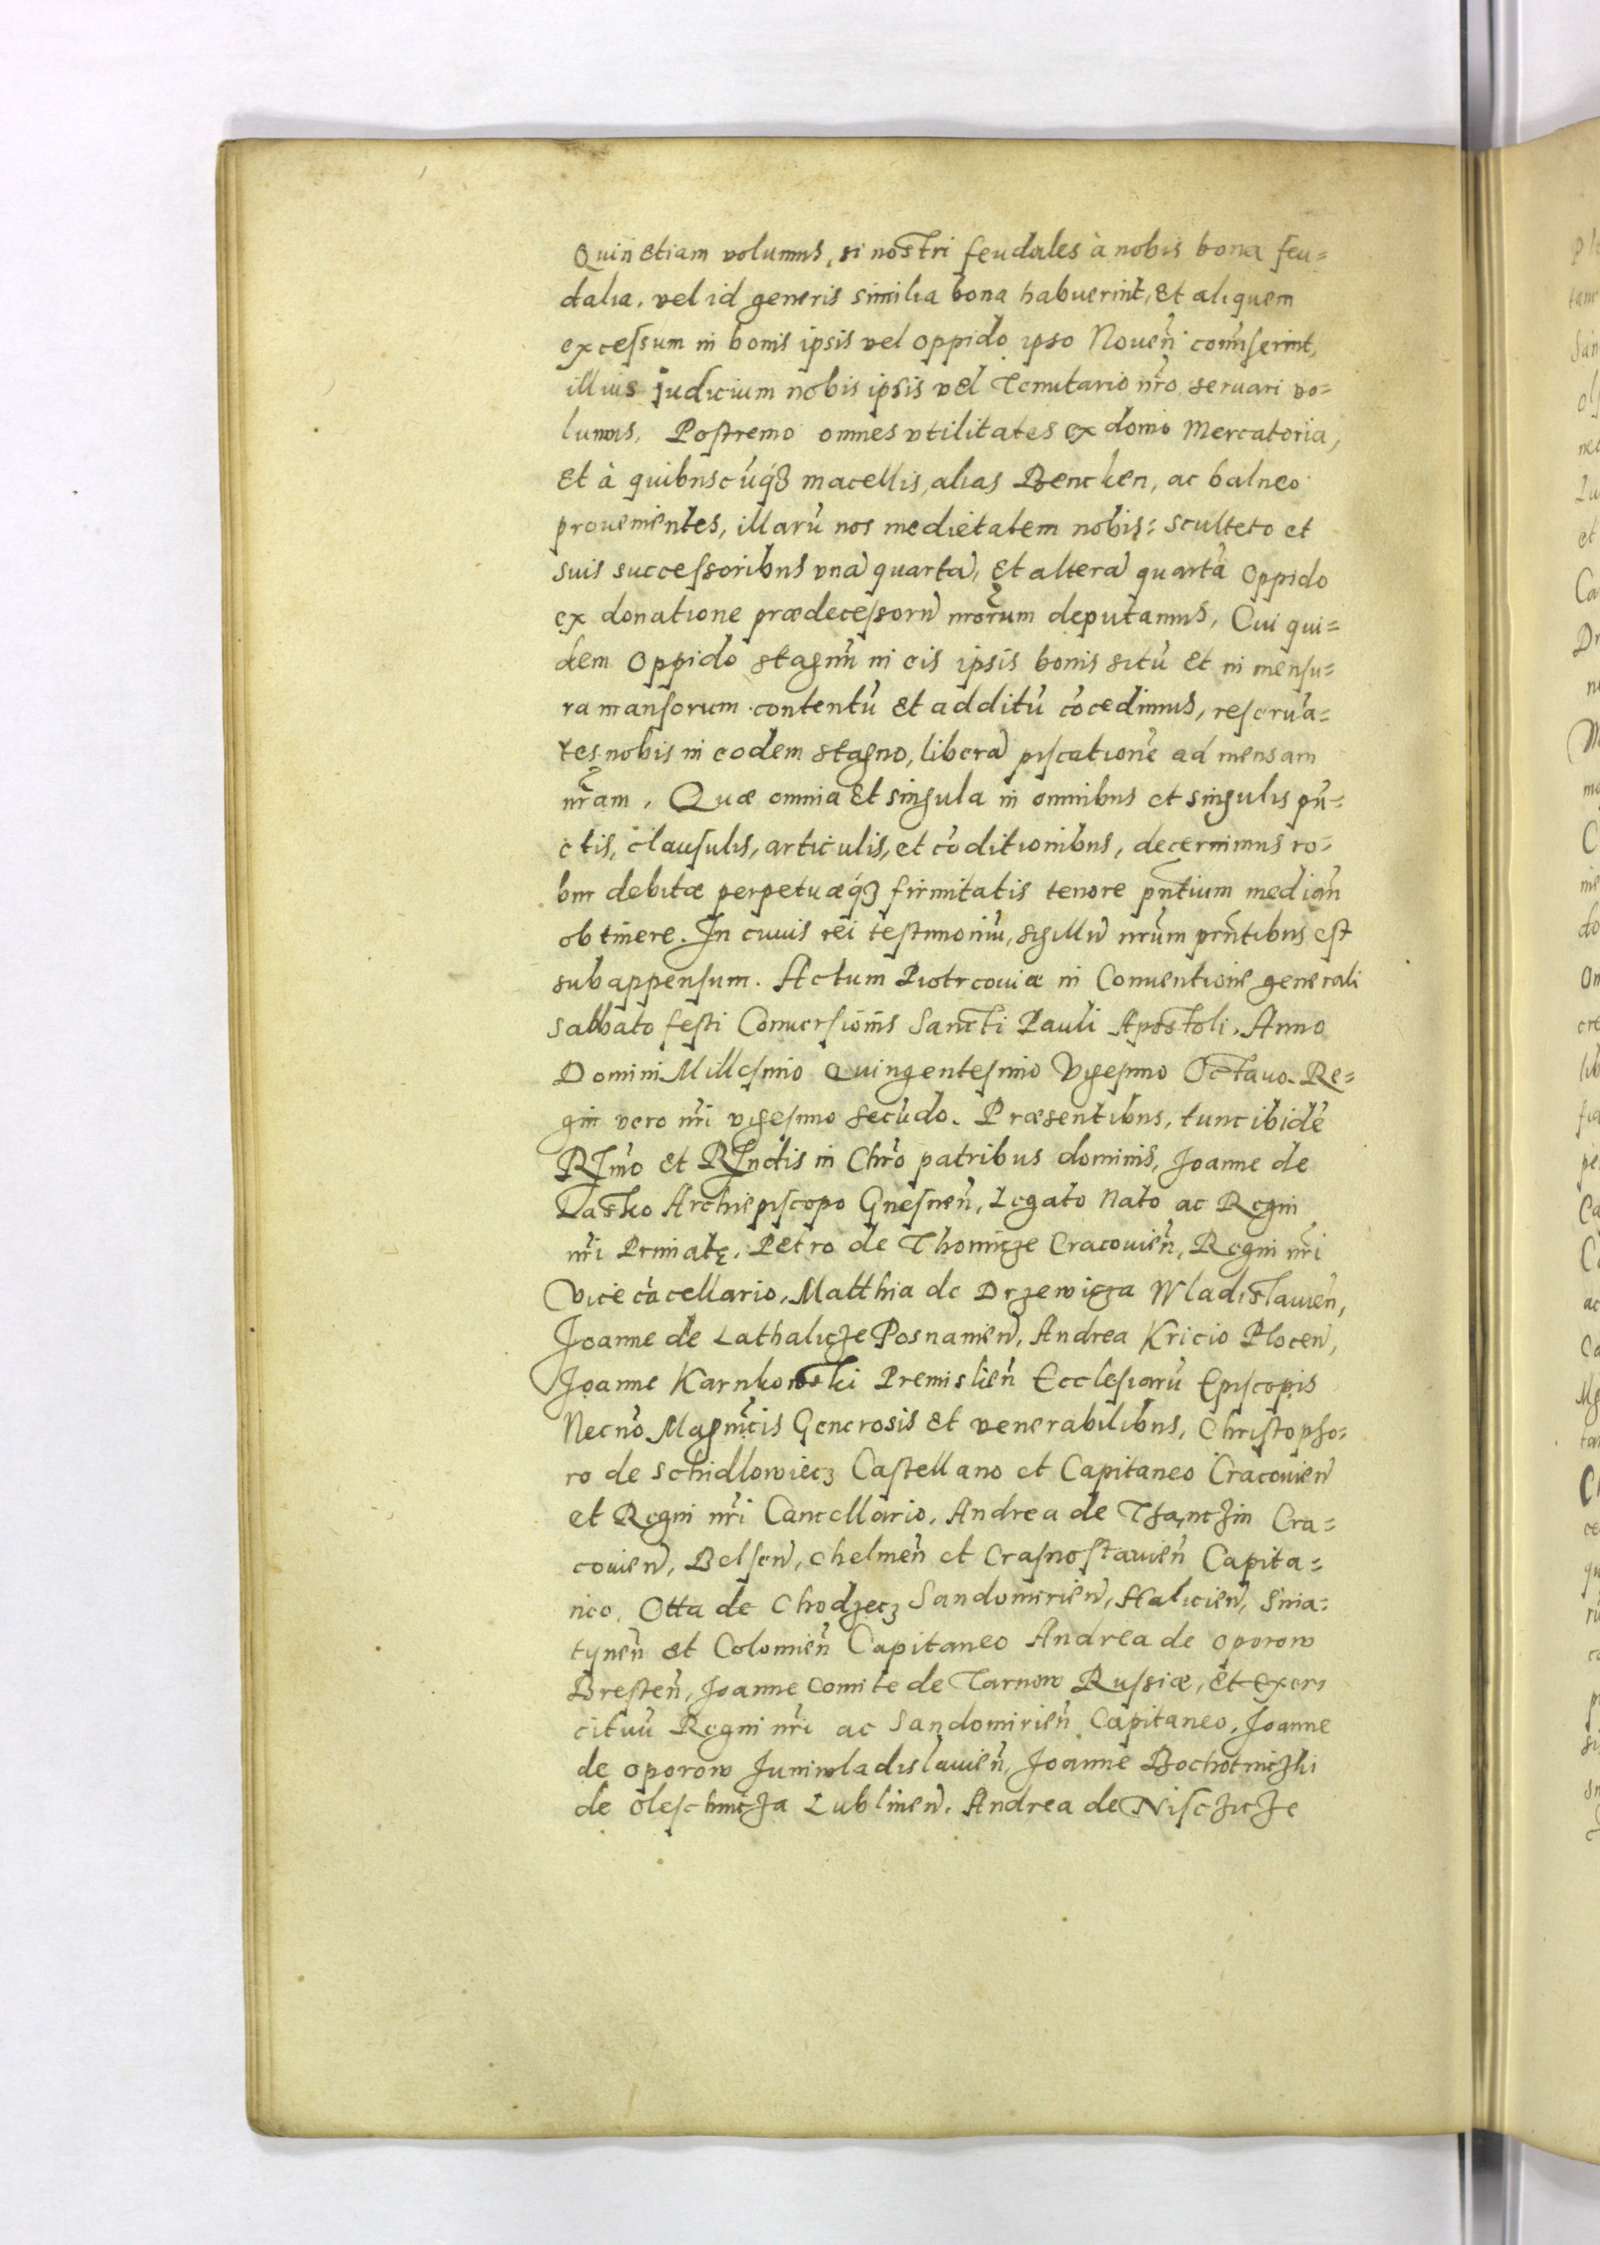 Quin etiam volumus, si nostri feudales à nobis bona feu=
dalia, vel id generis similia bona habuerint, Et aliquem
excessum in bonis ipsis vel oppido ipso Nouen̄ com̄iserint,
illius judicium nobis ipsis vel Tenutario nr̄o seruari vo=
lumus. Postremo omnes vtilitates ex domo Mercatoria,
Et à quibuscūq3 macellis, alias Bencken, ac balneo
prouenientes, illarū nos medietatem nobis: sculteto et
suis successoribus vnā quartā, Et alterā quartā oppido
ex donatione prædecessorū nr̄orum deputamus, Cui qui=
dem oppido stagnū in eis ipsis bonis sitū Et in mensu=
ra mansorum contentū Et additū cōcedimus, reseruā=
tes nobis in eodem stagno, liberā piscationē ad mensam
nr̄am. Quæ omnia Et singula in omnibus et singulis pū=
ctis, clausulis, articulis, et cōditionibus, decernimus ro=
bur debitæ perpetuæq3 firmitatis tenore pn̄tium mediān
obtinere. In cuius rei testimoniū, sigillū nr̄um prn̄tibus est
subappensum. Actum Piotrcouiæ in Conuentione generali
sabbato festi Conuersionis Sancti Pauli Apostoli. Anno
Domini Millesimo Quingentesimo Vigesimo Octauo. Re=
gni vero nr̄i vigesimo secūdo. Præsentibus, tunc ibidē
Rīmo Et Rīndis in Chr̄o patribus dominis, Joanne de
Lasko Archiepiscopo Gnesnen̄, Legato Nato ac Regni
nr̄i Primatę. Petro de Thomicze Cracouien̄, Regni nr̄i
Vicecācellario, Matthia de Drzewicza Wladislauien̄,
Joanne de Lathalicze Posnanien̄, Andrea Kricio Plocen̄,
Joanne Karnkowski Premislien̄ Ecclesiarū Episcopis
Necnō Magnīcis Generosis Et venerabilibus, Christopho=
ro de Schidlowiecz Castellano et Capitaneo Cracouien̄
et Regni nr̄i Cancellario, Andrea de Thanczin Cra=
couien̄, Belsen̄, Chelmen̄ et Crasnostauien̄ Capita=
neo, Otta de Chodzecz Sandomirien̄, Halicien̄, Snia=
tynen̄ et Colomien̄ Capitaneo Andrea de Oporow
Bresten̄, Joanne comite de Tarnow Russiæ, Et exer=
cituū Regni nr̄i ac Sandomirien̄ Capitaneo, Joanne
de Oporow Juniwladislauien̄, Joanne Bochotniczki
de Oleschnicza Lublinen̄. Andrea de Nisczicze